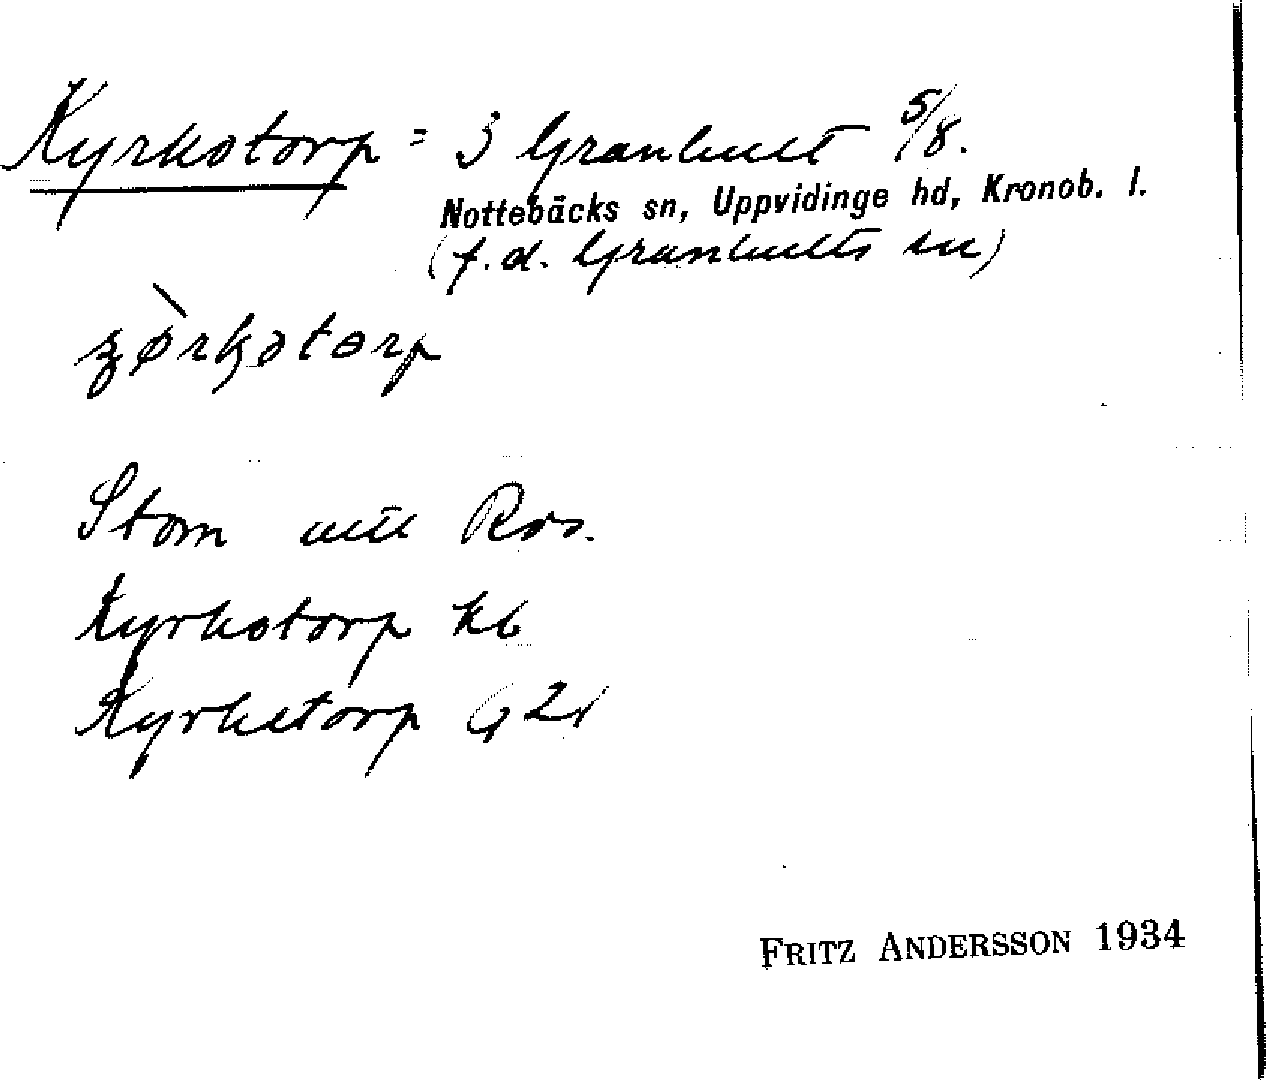 Kyrkotorp = 3 Granhult 5/8.
Nottebäcks sn, Uppvidinge hd, Kronob. l.
(f.d. Granhults sn)
Stom
Kyrkotorp kb
Kyrketorp G 21
FRITZ ANDERSSON 1934